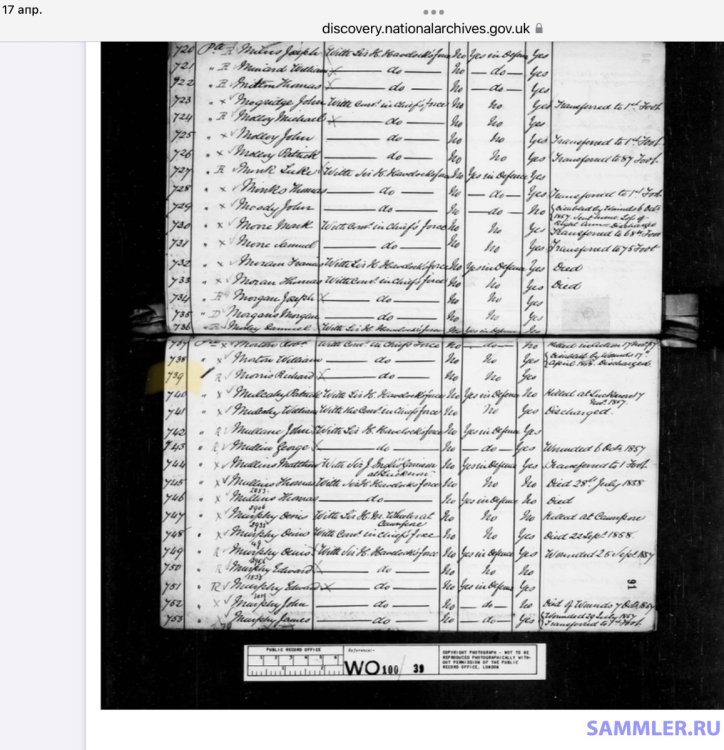 17 апр.
•••
discovery.nationalarchives.gov.uk
720 Pte R Milns Joseph With Sir H. Havelock's force No Yes in Defence Yes
721 " R William — do — No — do — Yes
722 " R Thomas — do — No — do — Yes
723 " x Mogridge John With Com' in Chief's force No No Yes Transferred to 1st Foot
724 " R Molloy Michael x — do — No No Yes
725 " x Molloy John — do — No No Yes Transferred to 1st Foot
726 " x Molloy Patrick — do — No No Yes Transferred to 87 Foot
727 " R Monk Luke With Sir H. Havelock's force No Yes in Defence Yes
728 " x Monks Thomas — do — No — do — Yes Transferred to 1st Foot
729 " x Moody John — do — No — do — No Disabled by Wounds 6 Octr 1857. Loss of Right Arm - Discharged
730 " x Moore Mark With Com' in Chief's force No No Yes Transferred to 68th Foot
731 " x Moore Samuel — do — No No Yes Transferred to 75 Foot
732 " x Moran With Sir H. Havelock's force No Yes in Defence Yes Died
733 " x Moran Thomas With Com' in Chief's force No No Yes Died
734 " R Morgan Joseph x — do — No No Yes
735 " D Morgan Morgan — do — No No Yes
736 Samuel With Sir H. Havelock's force No Yes in Defence No
737 Pte x With Com' in Chief's force No — do — No Killed in Action 17 Novr 57
738 " x Morton William — do — No No Yes Disabled by Wounds 17th April 1858. Discharged
739 R Morris Richard x — do — No No Yes
740 " x Mulcahy Patrick With Sir H. Havelock's force No Yes in Defence No Killed at Lucknow 17 Novr 1857.
741 " x Mulcahy William With the Com' in Chief's force No No Yes Discharged.
742 " R Mullane John With Sir H. Havelock's force No Yes in Defence Yes
743 " R Mullin George — do — No — do — Yes Wounded 6 Octr 1857
744 " x Mullins Matthew With Sir J. at Lucknow No Yes in Defence Yes Transferred to 1 Foot
745 " x Mullins Thomas With Sir H. Havelock's force No No No Died 28th July 1858
746 " x Mullins Thomas — do — No Yes in Defence No Died
747 " x Murphy Denis With Sir H. M. Wheeler at Cawnpore No No No Killed at Cawnpore
748 " x Murphy Denis With Com' in Chief's force No No Yes Died 22 Septr 1858.
749 " R Murphy Denis With Sir H. Havelock's force No Yes in Defence Yes Wounded 25 Septr 1857
750 " R Murphy Edward — do — No No No
751 " R Murphy Edward x — do — No Yes in Defence Yes
752 " x Murphy John — do — No — do — No Died of Wounds 7 Octr 1857
753 " x Murphy James — do — No — do — Yes Wounded 29 July 1857 Transferred to 1st Foot
91
PUBLIC RECORD OFFICE
1 2 3 4 5 6
Reference:-
WO 100 / 39
COPYRIGHT PHOTOGRAPH - NOT TO BE
REPRODUCED PHOTOGRAPHICALLY WITH-
OUT PERMISSION OF THE PUBLIC
RECORD OFFICE, LONDON
SAMMLER.RU